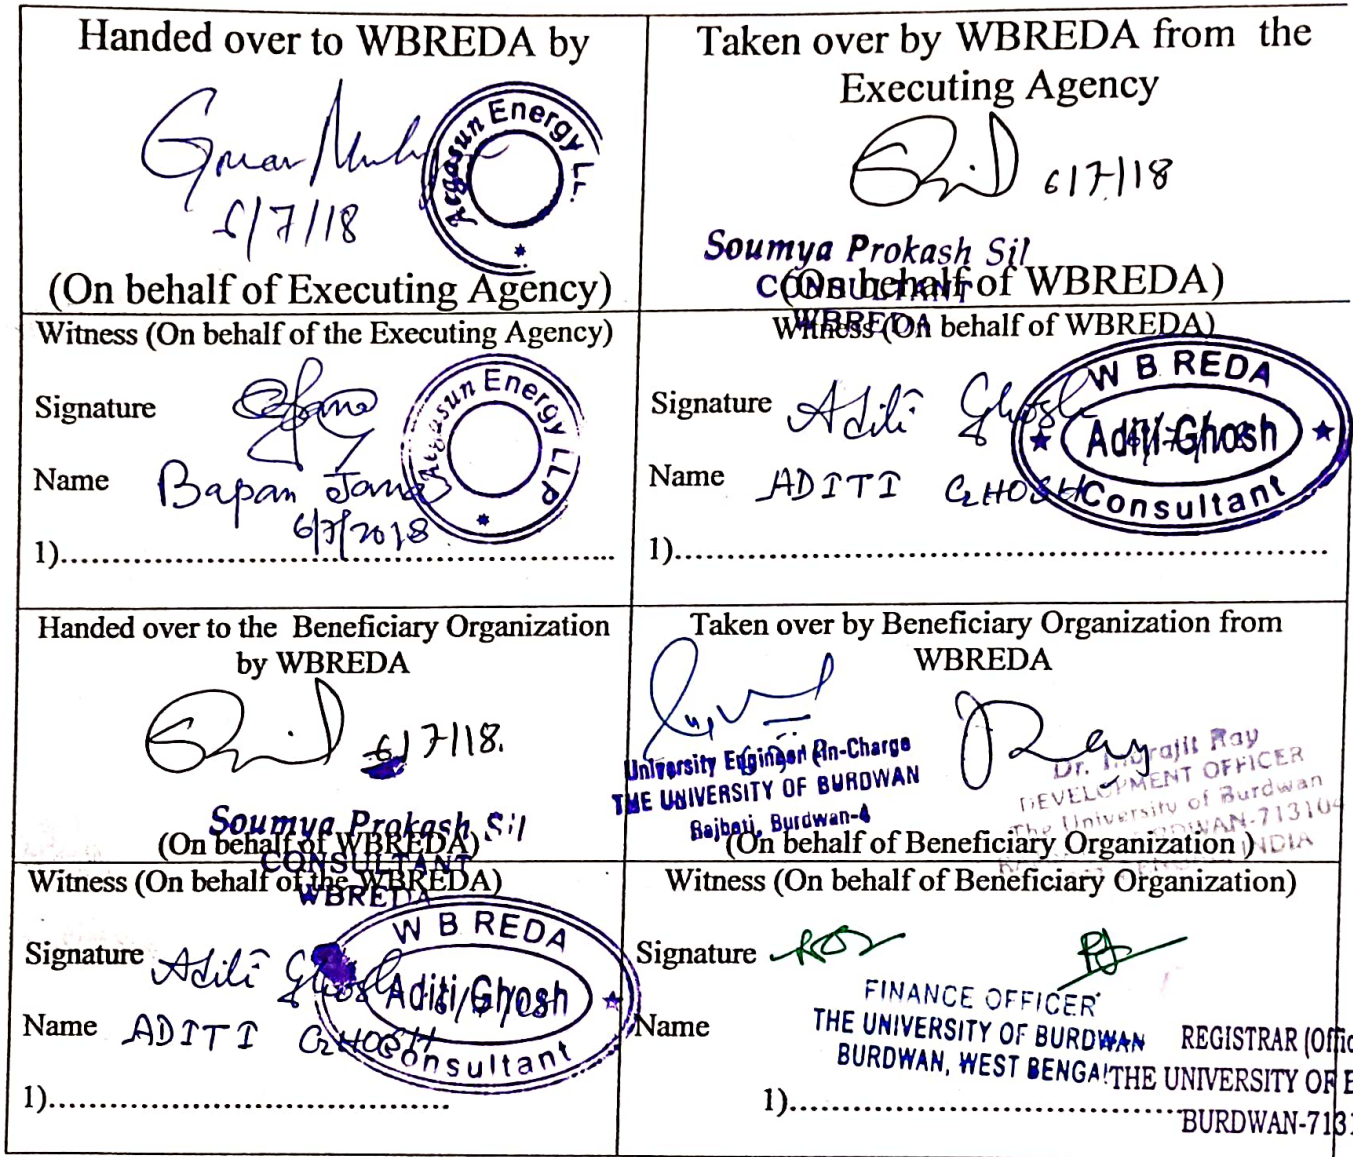 Handed over to WBREDA by
6/7/18
Aegasun Energy LL
(On behalf of Executing Agency)
Taken over by WBREDA from the
Executing Agency
6/7/18
Soumya Prokash Sil
CONSULTANT
WBREDA
(On behalf of WBREDA)
Witness (On behalf of the Executing Agency)
Signature
Name Bapan Jana
6/7/2018
Aegasun Energy LLP
1)
Witness (On behalf of WBREDA)
Signature Aditi Ghosh
Name ADITI GHOSH
W B REDA
Aditi Ghosh
Consultant
1)
Handed over to the Beneficiary Organization
by WBREDA
6/7/18.
Soumya Prokash Sil
CONSULTANT
WBREDA
(On behalf of WBREDA)
Taken over by Beneficiary Organization from
WBREDA
University Engineer (In-Charge
THE UNIVERSITY OF BURDWAN
Rajbati, Burdwan-4
Ray
Dr. Indrajit Ray
DEVELOPMENT OFFICER
The University of Burdwan
BURDWAN-713104
INDIA
(On behalf of Beneficiary Organization )
Witness (On behalf of the WBREDA)
Signature Aditi Ghosh
Name ADITI GHOSH
W B REDA
Aditi Ghosh
6/7/18
Consultant
1)
Witness (On behalf of Beneficiary Organization)
Signature
Name
FINANCE OFFICER
THE UNIVERSITY OF BURDWAN
BURDWAN, WEST BENGAL
REGISTRAR (Offic
THE UNIVERSITY OF B
BURDWAN-713
1)